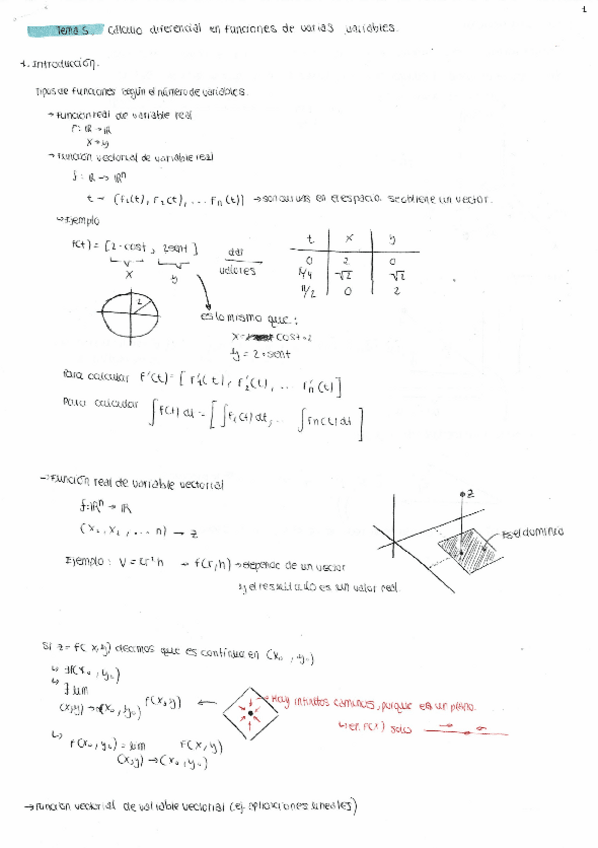 1
Tema 5. Cálculo diferencial en funciones de varias variables.
1. Introducción.
Tipos de funciones según el número de variables.
→ Función real de variable real
f: ℝ → ℝ
x → y
→ Función vectorial de variable real
f: ℝ → ℝⁿ
t → (f₁(t), f₂(t), ... fₙ(t)) → son curvas en el espacio. se obtiene un vector.
↳ Ejemplo
f(t) = [2·cost, 2sent] dar valores
x y
t x y
0 2 0
π/4 √2 √2
π/2 0 2
2
es lo mismo que:
x = cost·2
y = 2·sent
Para calcular f'(t) = [f'₁(t), f'₂(t), ... f'ₙ(t)]
Para calcular ∫f(t)dt = [∫f₁(t)dt, ... ∫fn(t)dt]
→ Función real de variable vectorial
f: ℝⁿ → ℝ
(x₁, x₂, ... n) → z
z
Es el dominio
Ejemplo: V = πr²h → f(r,h) → depende de un vector
y el resultado es un valor real.
Si z = f(x,y) decimos que es continua en (x₀, y₀)
↳ ∃f(x₀, y₀)
↳ ∃ lim f(x,y)
(x,y) → (x₀, y₀)
Hay infinitos caminos, porque es un plano.
↳ en f(x) solo
↳ f(x₀, y₀) = lim f(x,y)
(x,y) → (x₀, y₀)
→ Función vectorial de variable vectorial (ej. aplicaciones lineales)